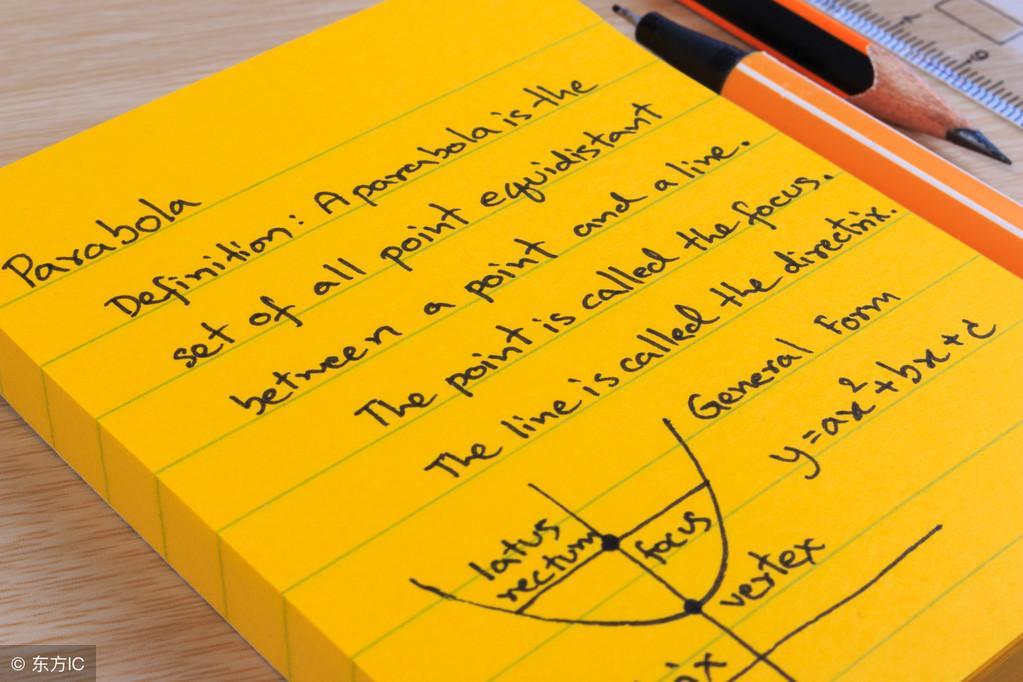 Parabola
Definition: A parabola is the
set of all point equidistant
between a point and a line.
The point is called the focus.
The line is called the directrix.
General Form
y = ax² + bx + c
latus
rectum
focus
vertex
© 东方IC